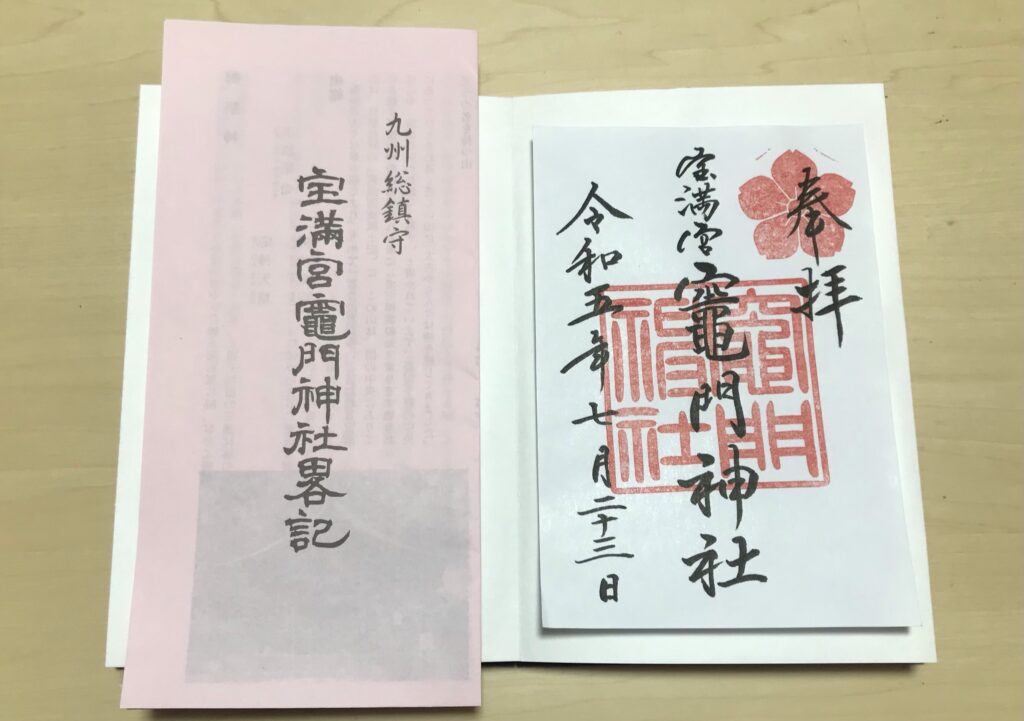 九州総鎮守
宝満宮竈門神社畧記
奉拝
宝満宮竈門神社
令和五年七月二十三日
竈門
神社